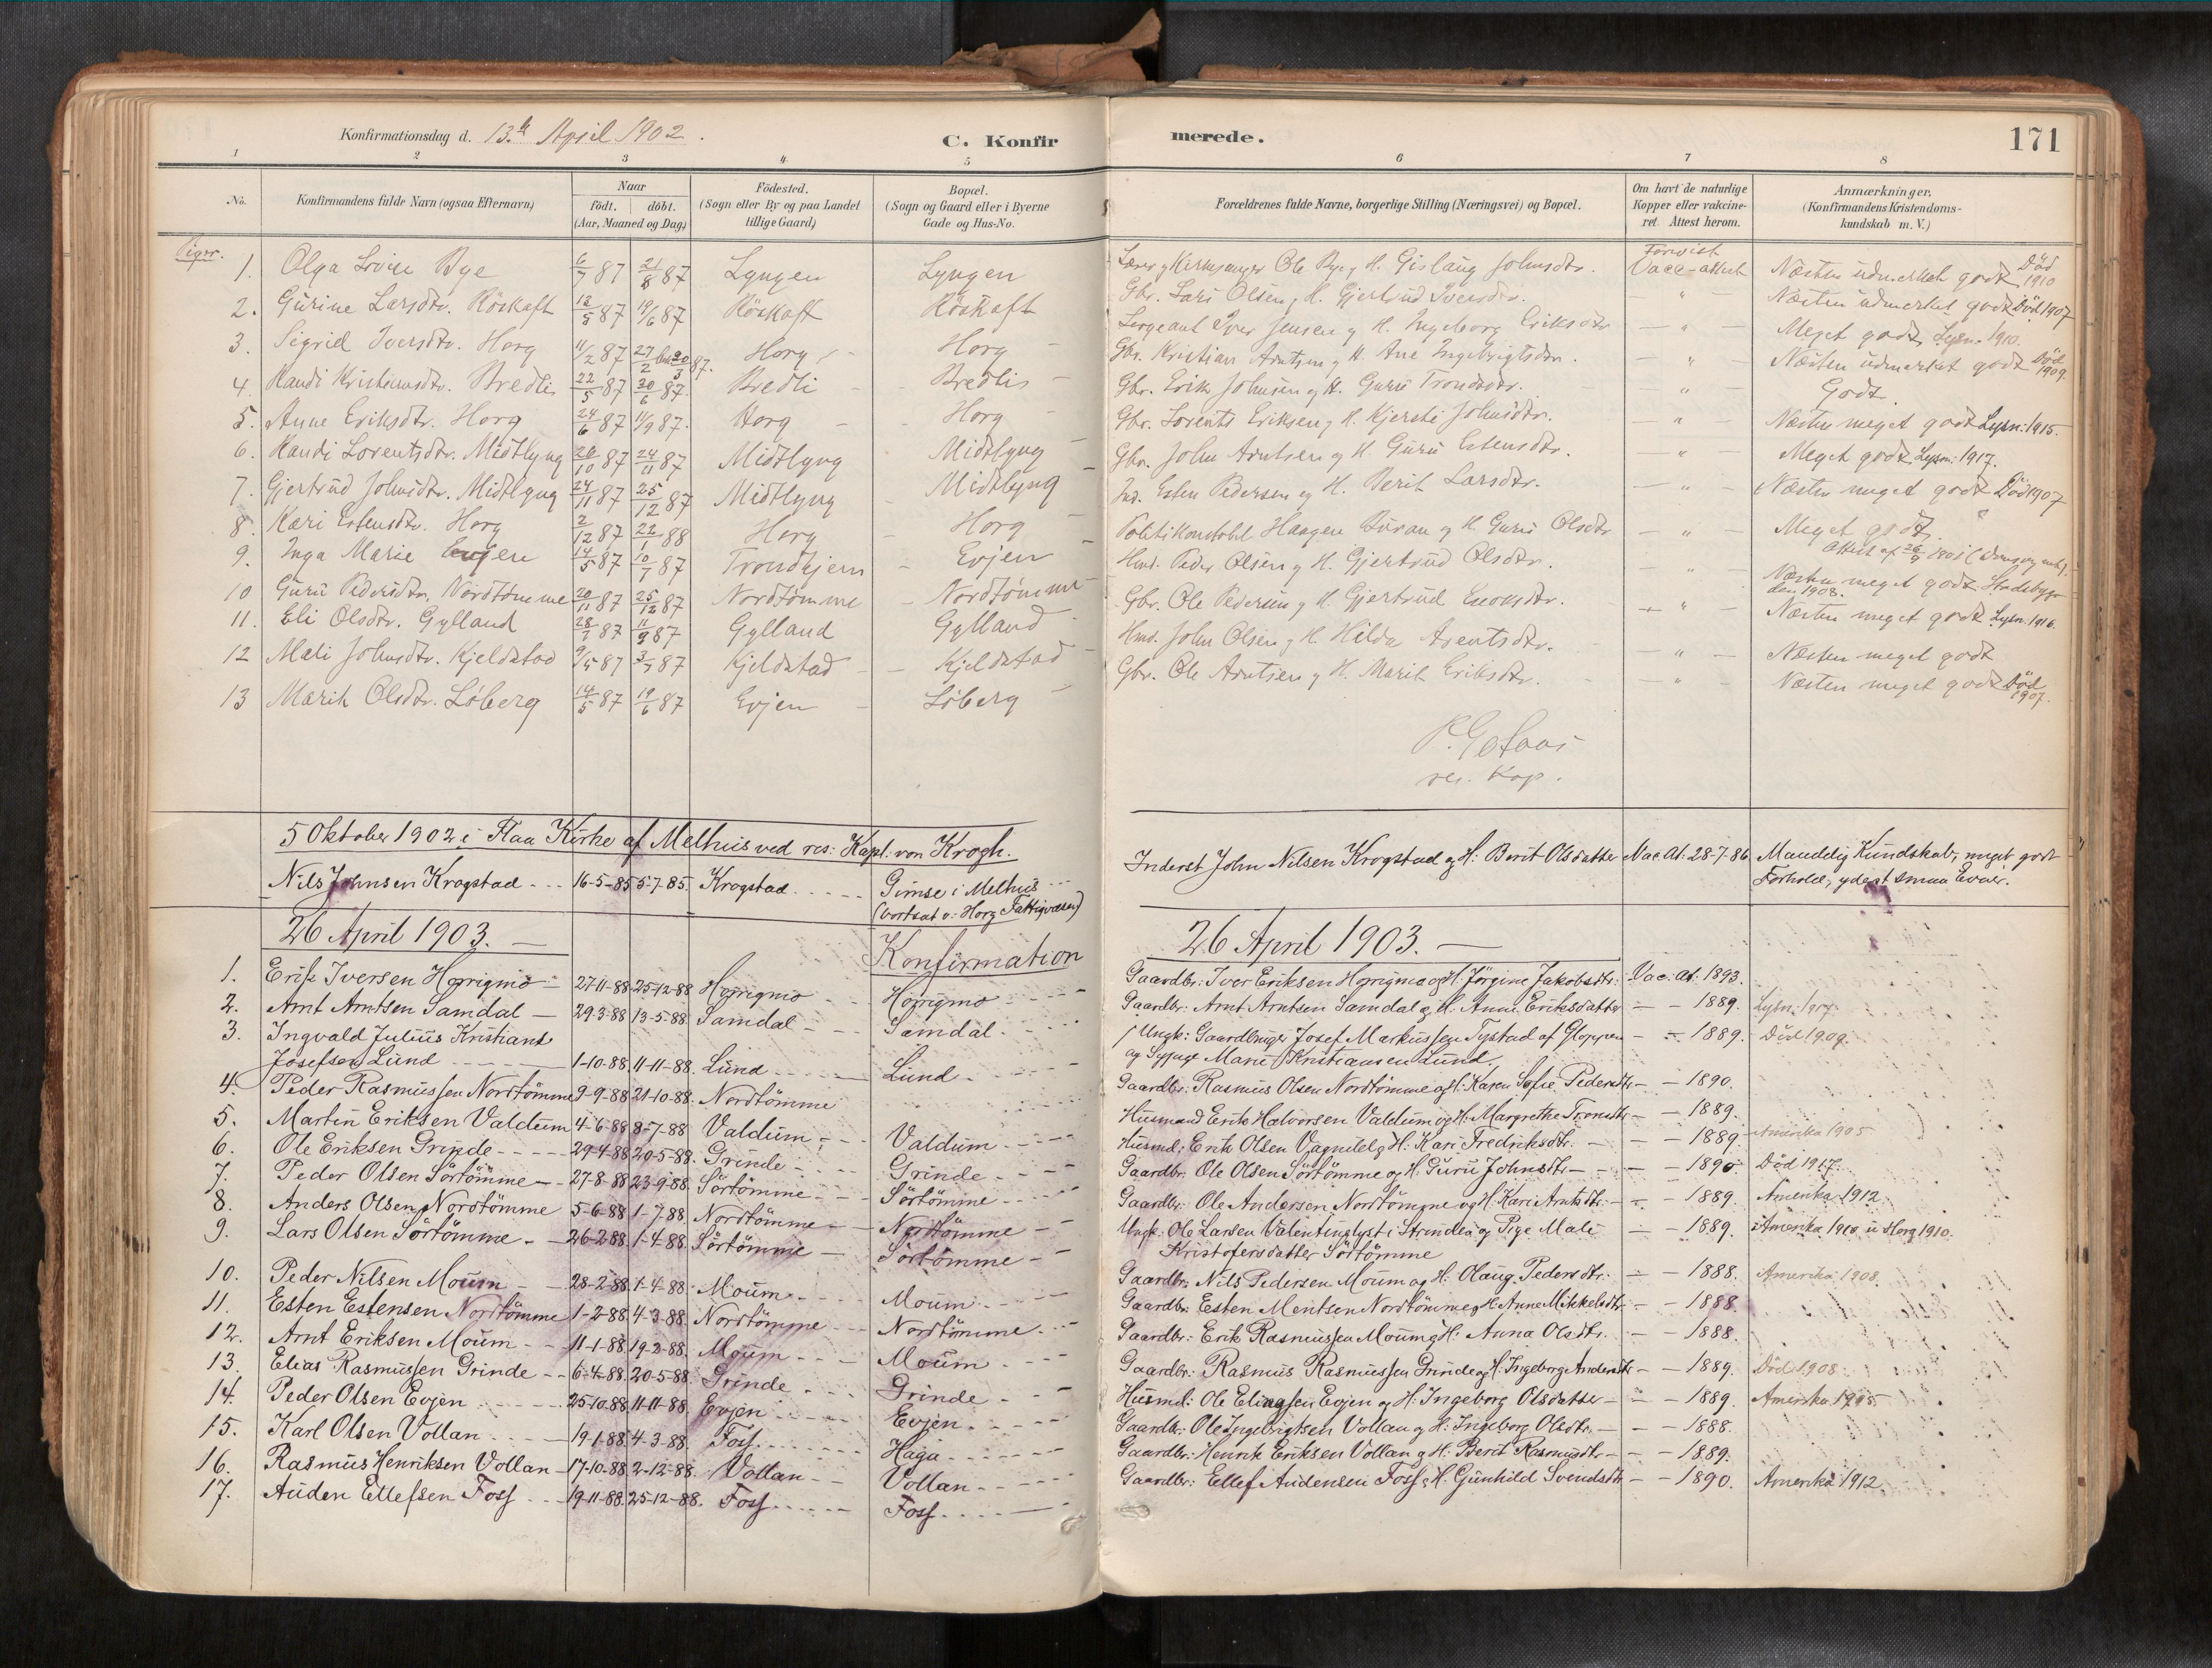 Konfirmationsdag d. 13de April 1902.
C. Konfir
merede.
171
1 2 3 4 5 6 7 8
No. Konfirmandens fulde Navn (ogsaa Efternavn) Naar født. døbt. (Aar, Maaned og Dag) Fødested. (Sogn eller By og paa Landet tillige Gaard) Bopæl. (Sogn og Gaard eller i Byerne Gade og Hus-No. Forældrenes fulde Navne, borgerlige Stilling (Næringsvei) og Bopæl. Om havt de naturlige Kopper eller vakcineret. Attest herom. Anmærkninger. (Konfirmandens Kristendomskundskab m. V.)
Piger.
1. Olga Lovise Bye 6/7 87 21/8 87 Lyngen Lyngen Lærer og Kirkesanger Ole Bye og H. Gislaug Johnsdtr. Forevist Vacc-attest Næsten udmerket godt Død 1910
2. Gurine Larsdtr. Röskaft 12/5 87 19/6 87 Röskaft Röskaft Gbr. Lars Olsen og H. Gjertrud Iversdtr. — " — Næsten udmerket godt Død 1907
3. Sigrid Iversdtr. Horg 11/2 87 27/2 20/3 87. Horg Horg Sergeant Iver Jensen og H. Ingeborg Eriksdtr — " — Meget godt Lysn. 1910.
4. Randi Kristiansdtr. Bredli 22/5 87 20/6 87. Bredli Bredli Gbr. Kristian Arntsen og H. Ane Ingebrigtsdtr. — " Næsten udmerket godt Død 1909.
5. Anne Eriksdtr. Horg 24/6 87 11/9 87. Horg Horg Gbr. Erik Johnsen og H. Guru Trondsdtr. " Godt.
6. Randi Lorentsdtr. Midtlyng 20/10 87 24/11 87 Midtlyng Midtlyng Gbr. Lorents Eriksen og H. Kjersti Johnsdtr. — " — Næsten meget godt Lysn: 1915.
7. Gjertrud Johnsdtr. Midtlyng 24/11 87 25/12 87 Midtlyng Midtlyng Gbr. John Arntsen og H. Guru Estensdtr. — " — Meget godt Lysn: 1917.
8. Kari Estensdtr. Horg 2/12 87 22/1 88 Horg Horg Ind. Esten Pedersen og H. Berit Larsdtr. — " — Næsten meget godt Död 1907
9. Inga Marie Evjen 14/5 87 10/7 87 Trondhjem Evjen Politikonstabel Haagen Buran og H. Guru Olsdtr — " — Meget godt.
10 Guru Pedersdtr. Nordtømme 20/11 87 25/12 87 Nordtømme Nordtømme Hmd. Peder Olsen og H. Gjertrud Olsdtr. " Næsten meget godt Stadsbygden 1908.
11. Eli Olsdtr. Gylland 28/7 87 11/9 87 Gylland Gylland Gbr. Ole Pedersen og H. Gjertrud Enoksdtr. — " — Næsten meget godt Lysn. 1916.
12 Mali Johnsdtr. Kjeldstad 9/5 87 3/7 87 Kjeldstad Kjeldstad Hmd. John Olsen og H. Hilda Arentsdtr. — " — Næsten meget godt
13 Marit Olsdtr. Löberg 14/5 87 19/6 87 Evjen Löberg Gbr. Ole Arntsen og H. Marit Eriksdtr. — " — Næsten meget godt Død 1907.
res. Kap.
5 Oktober 1902 i Flaa Kirke af Melhus ved res: Kapl. von Krogh.
Nils Johnsen Krogstad 16-5-85 5-7-85. Krogstad Gimse i Melhus (bortsat v. Horg Fattigvæsen) Inderst John Nilsen Krogstad og H: Berit Olsdatter Vac. At. 28-7-86 Maadelig Kundskab, meget godt Forhold, ydert smaa Evner.
26 April 1903.
Konfirmation
26 April 1903.
1. Erik Iversen Horrigmo 27-11-88 25-12-88 Horrigmo Horrigmo Gaardbr: Iver Eriksen Horrigmo og H. Jörgine Jakobsdtr: Vac: At: 1893.
2. Arnt Arntsen Samdal 29-3-88 13-5-88 Samdal Samdal Gaardbr: Arnt Arntsen Samdal og H: Anne Eriksdatter — — 1889. Lysn.
3. Ingvald Julius Kristians Ungk: Gaardbruger Josef Markussen Tystad af Gloppen — 1889. Död 1909.
Josefsen Lund 1-10-88 11-11-88. Lund Lund og Pige Marie Kristiansen Lund,
4. Peder Rasmussen Nordtömme 9-9-88 21-10-88. Nordtömme Gaardbr: Rasmus Olsen Nordtömme og H: Karen Sofie Pedersdtr — 1890.
5. Martin Eriksen Valdum 4-6-88 8-7-88 Valdum Valdum Husmand Erik Halvorsen Valdum og H: Margrethe Tronsdtr — 1889.
6. Ole Eriksen Grinde 29-4-88 20-5-88. Grinde Grinde Husmd: Erik Olsen Vagnild og H: Kari Fredriksdtr. — — 1889 Amerika 1905
7. Peder Olsen Sörtömme 27-8-88 23-9-88. Sörtömme Sörtömme Gaardbr: Ole Olsen Sörtömme og H: Guru Johnsdtr — — 1890 Död 1917.
8. Anders Olsen Nordtömme 5-6-88 1-7-88 Nordtömme Nordtömme Gaardbr: Ole Andersen Nordtömme og H: Kari Arntsdtr: — 1889. Amerika 1912
9. Lars Olsen Sörtömme 26-2-88 1-4-88 Sörtömme Sörtömme Ungk. Ole Larsen Valentinlyst i Strinden og Pige Mali — 1889. Amerika 1910 u Horg 1910.
Kristofersdatter Sörtömme
10. Peder Nilsen Moum 28-2-88 1-4-88 Moum Moum Gaardbr: Nils Pedersen Moum og H: Olaug Pedersdtr: — — 1888. Amerika 1908.
11. Esten Estensen Nordtömme 1-2-88 4-3-88. Nordtömme Nordtömme Gaardbr: Esten Mentsen Nordtömme og H: Anne Mikkelsdtr — — 1888.
12. Arnt Eriksen Moum 11-1-88 19-2-88. Moum Moum Gaardbr: Erik Rasmussen Moum og H: Anna Olsdtr. — — 1888.
13. Elias Rasmussen Grinde 6-4-88. 20-5-88 Grinde Grinde Gaardbr: Rasmus Rasmussen Grinde og H: Ingeborg Andersdtr — 1889. Död 1908.
14. Peder Olsen Evjen 25-10-88 11-11-88. Evjen Evjen Husmd: Ole Eliassen Evjen og H: Ingeborg Olsdatter — — 1889. Amerika
15. Karl Olsen Vollan 19-1-88 4-3-88. Foss Haga Gaardbr: Ole Ingebrigtsen Vollan og H: Ingeborg Olsdtr. — — 1888.
16. Rasmus Henriksen Vollan 17-10-88 2-12-88. Vollan Vollan Gaardbr: Henrik Eriksen Vollan og H: Berit Rasmusdtr — — 1889.
17. Auden Ellefsen Foss 19-11-88 25-12-88. Foss Foss Gaardbr: Ellef Audensen Foss og H. Gunhild Svendsdtr — — 1890. Amerika 1912.